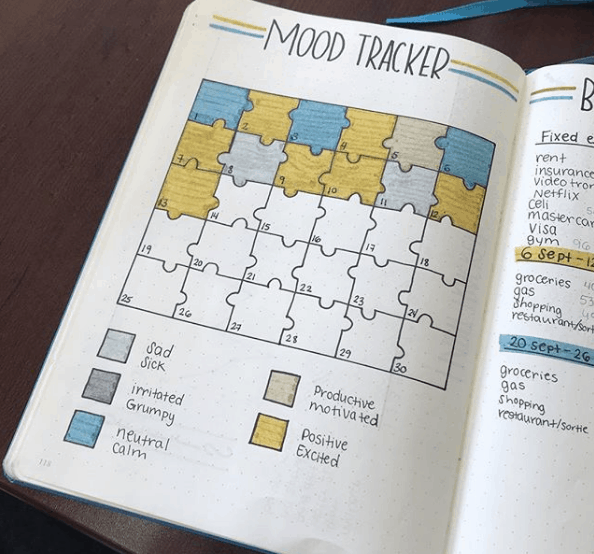 MOOD TRACKER
1 2 3 4 5 6
7 8 9 10 11 12
13 14 15 16 17 18
19 20 21 22 23 24
25 26 27 28 29 30
Sad
Sick
irritated
Grumpy
neutral
calm
Productive
motivated
Positive
Excited
B
Fixed e
rent
insurance
Netflix
celi
mastercar
Visa
gym 96
6 Sept-12
groceries 4
gas 53
Shopping 4
restaurant/sort
20 sept-26
groceries
gas
Shopping
restaurant/sortie